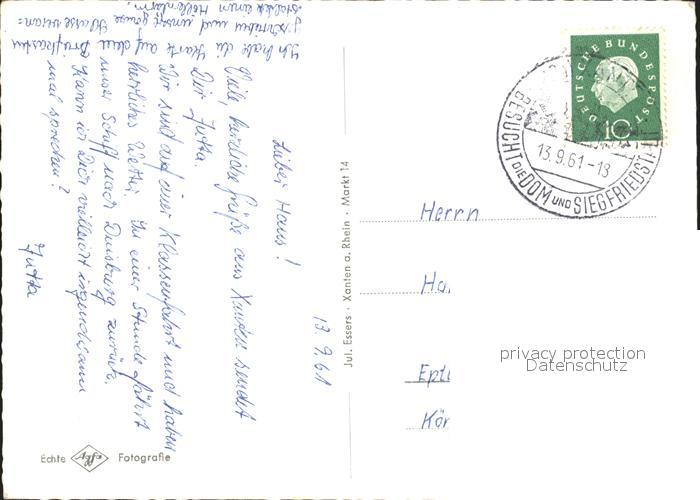 13.9.61
Lieber Hans!
Viele herzliche Grüße aus Xanten sendet
Dir Jutta.
Wir sind auf einer Klassenfahrt und haben
herrliches Wetter. In einer Stunde fährt
unser Schiff nach Duisburg zurück.
Kann ich Dich vielleicht irgendwann
mal sprechen?
Jutta
Ich habe die Karte auf dem Briefkasten
geschrieben und unsere ganze Klasse veran=
staltet einen Höllenlärm.
Jul. Essers · Xanten a. Rhein · Markt 14
DEUTSCHE BUNDESPOST
10
BESUCHT DIE DOM UND SIEGFRIEDSTADT
13.9.61-18
Herrn
Ha.
Kör
privacy protection
Datenschutz
Echte Agfa Fotografie